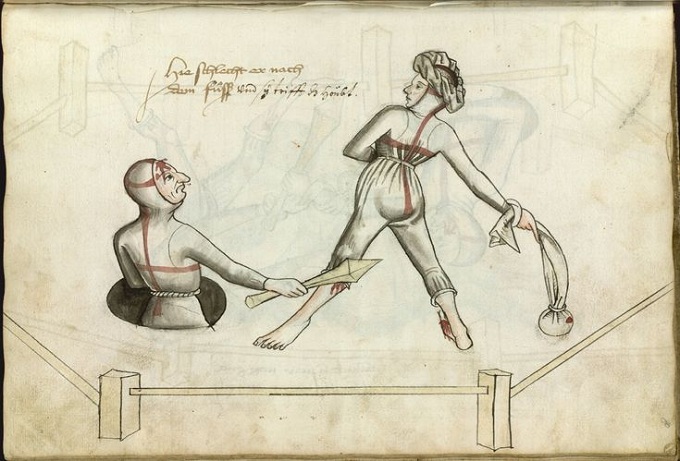 Hie schlecht er nach
dem fuͦß vnd sy trifft dz houbt.